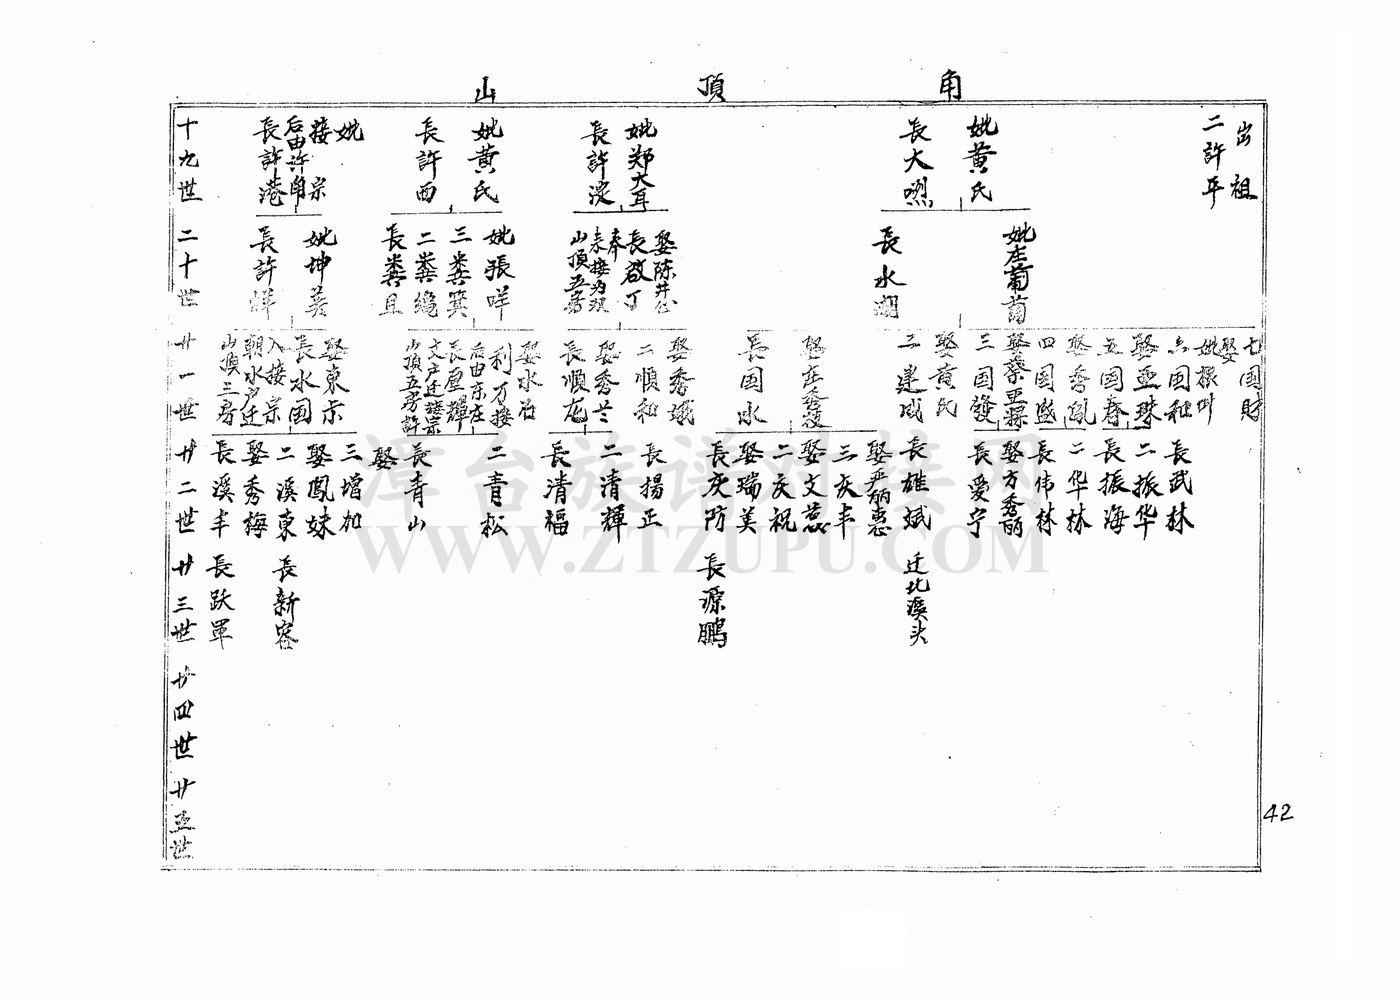 角頂山
出祖
二許平
妣黄氏
長大烈
妣郑大耳
長許淀
妣黄氏
長許西
妣
接宗
后由许角
長許港
十九世
妣庄葡萄
長水潮
娶陈井仏
長啟丁
山頂五房
妣張咩
三粪箕
二粪纔
長粪且
妣坤美
長許烊
二十世
七国財
娶
妣根叶
六国和
娶亚珠
五国春
娶秀凤
四国盛
娶蔡亚粿
三国發
娶黄氏
二遂成
娶庄秀枝
長国水
娶秀娥
二順和
娶秀兰
長順龙
娶水治
利万接
后由东庄
長屋輝
文户迁接宗
山頂五房許
娶東示
長水國
入接宗
朝水户迁
山頂三房
廿一世
長武林
二振华
長振海
二华林
長伟林
娶方秀丽
長爱宁
長雄斌
娶尹炳惠
三庆丰
娶文慈
二庆祝
娶瑞美
長庆防
長揚正
二清輝
長清福
二青松
長青山
娶
三增加
娶鳳妹
二溪東
娶秀梅
長溪丰
廿二世
迁北溪头
長源鹏
長新容
長跃軍
廿三世
廿四世
廿五世
42
漳台族谱对接网
WWW.ZTZUPU.COM